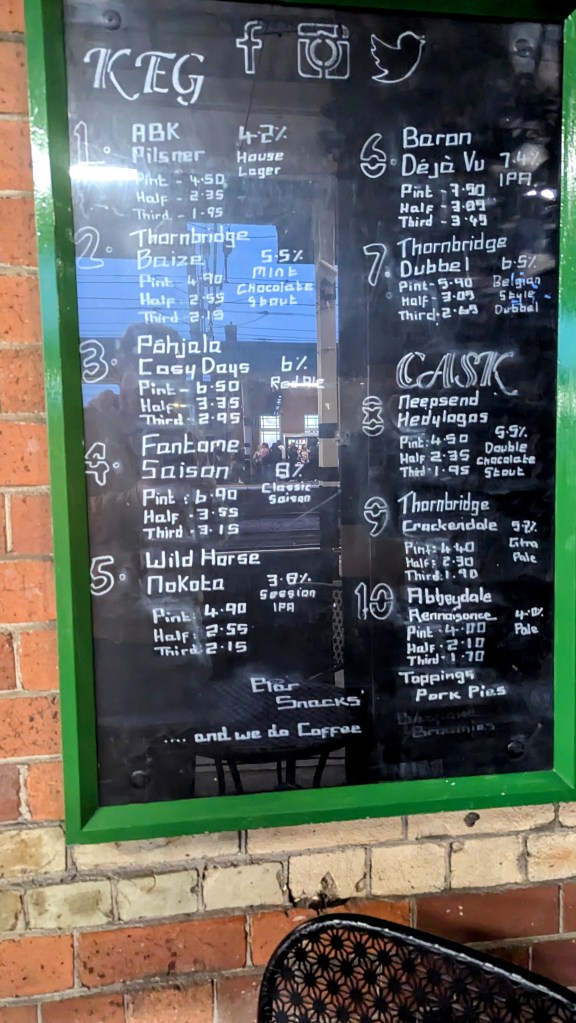 KEG
1. ABK 4.2%
Pilsner House
Lager
Pint - 4.50
Half - 2.35
Third - 1.95
2. Thornbridge
Baize 5.5%
Mint
Chocolate
Stout
Pint 4.90
Half 2.55
Third 2.15
3. Põhjala
Easy Days 6%
Red Ale
Pint - 6.50
Half 3.35
Third - 2.95
4. Fantome
Saison 8%
Classic
Saison
Pint : 6.90
Half : 3.55
Third : 3.15
5. Wild Horse
Nokota 3.8%
Session
IPA
Pint : 4.90
Half : 2.55
Third : 2.15
Bar
Snacks
.... and we do Coffee
6. Baron
Déjà Vu 7.4%
IPA
Pint - 7.50
Half - 3.85
Third - 3.45
7. Thornbridge
Dubbel 6.5%
Belgian
Style
Dubbel
Pint - 5.90
Half - 3.05
Third - 2.65
CASK
8 Neepsend
Hedylogos 5.5%
Double
Chocolate
Stout
Pint : 4.50
Half 2.35
Third - 1.95
9 Thornbridge
Crackendale 5.2%
Citra
Pale
Pint : 4.40
Half : 2.30
Third : 1.90
10 Abbeydale
Rennaisance 4.0%
Pale
Pint 4.00
Half : 2.10
Third - 1.70
Toppings
Pork Pies
Brownies